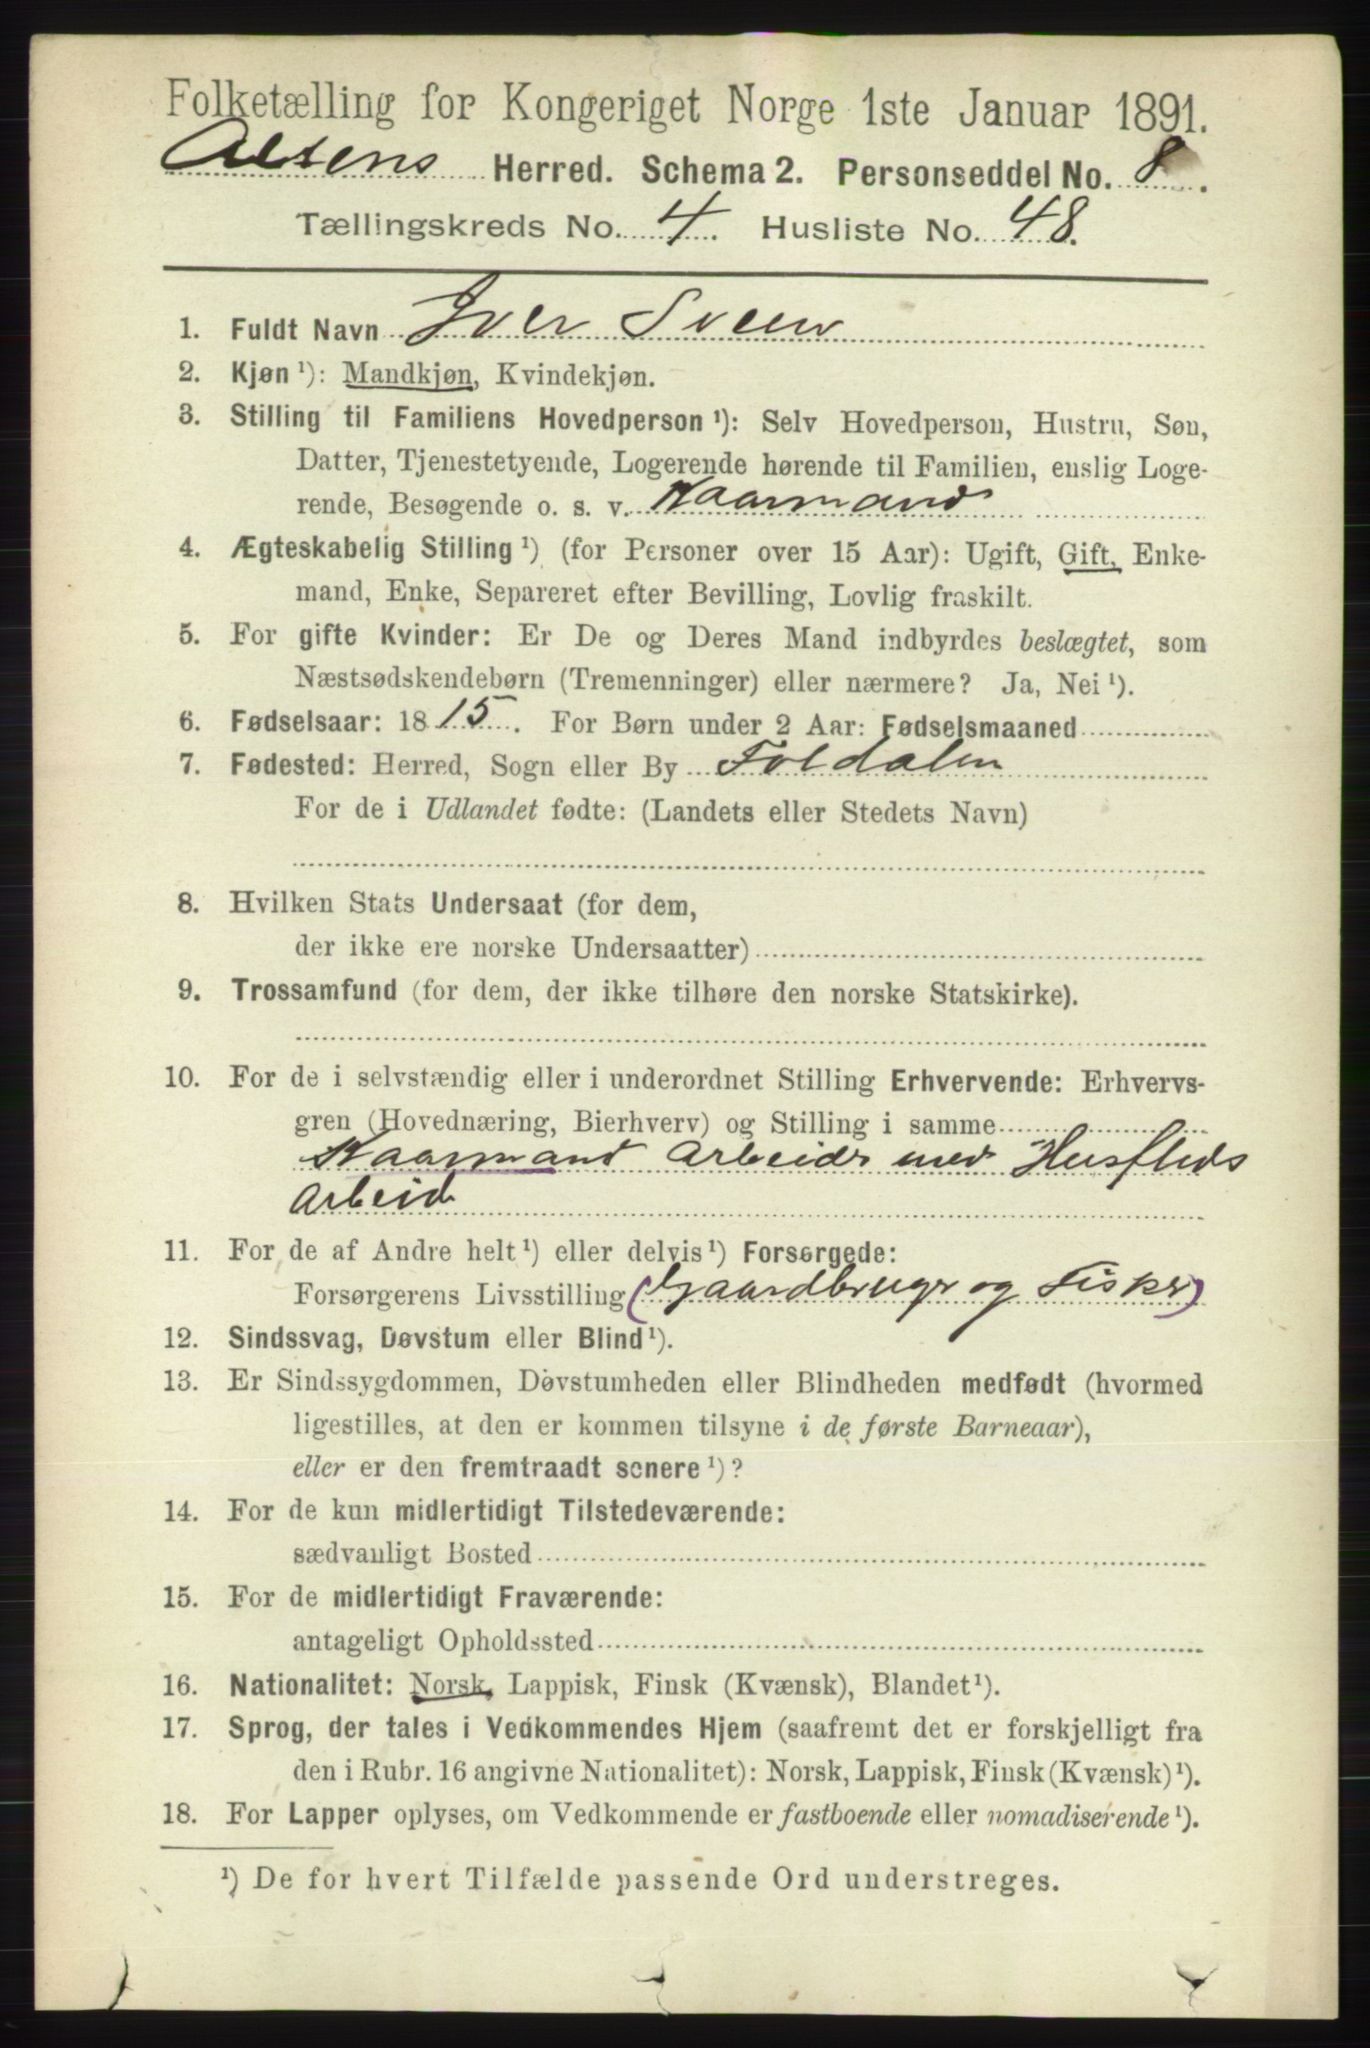 Folketælling for Kongeriget Norge 1ste Januar 1891.
Altens Herred. Schema 2. Personseddel No. 8.
Tællingskreds No. 4. Husliste No. 48.
1. Fuldt Navn Iver Sveen
2. Kjøn ¹): Mandkjøn, Kvindekjøn.
3. Stilling til Familiens Hovedperson ¹): Selv Hovedperson, Hustru, Søn,
Datter, Tjenestetyende, Logerende hørende til Familien, enslig Loge-
rende, Besøgende o. s. v. Kaarmand
4. Ægteskabelig Stilling ¹) (for Personer over 15 Aar): Ugift, Gift, Enke-
mand, Enke, Separeret efter Bevilling, Lovlig fraskilt.
5. For gifte Kvinder: Er De og Deres Mand indbyrdes beslægtet, som
Næstsødskendebørn (Tremenninger) eller nærmere? Ja, Nei ¹).
6. Fødselsaar: 1815. For Børn under 2 Aar: Fødselsmaaned
7. Fødested: Herred, Sogn eller By Foldalen
For de i Udlandet fødte: (Landets eller Stedets Navn)
8. Hvilken Stats Undersaat (for dem,
der ikke ere norske Undersaatter)
9. Trossamfund (for dem, der ikke tilhøre den norske Statskirke).
10. For de i selvstændig eller i underordnet Stilling Erhvervende: Erhvervs-
gren (Hovednæring, Bierhverv) og Stilling i samme
Kaarmand Arbeide med Husflids
Arbeid
11. For de af Andre helt ¹) eller delvis ¹) Forsørgede:
Forsørgerens Livsstilling (Gaardbruger og Fisker)
12. Sindssvag, Døvstum eller Blind ¹).
13. Er Sindssygdommen, Døvstumheden eller Blindheden medfødt (hvormed
ligestilles, at den er kommen tilsyne i de første Barneaar),
eller er den fremtraadt senere ¹)?
14. For de kun midlertidigt Tilstedeværende:
sædvanligt Bosted
15. For de midlertidigt Fraværende:
antageligt Opholdssted
16. Nationalitet: Norsk, Lappisk, Finsk (Kvænsk), Blandet ¹).
17. Sprog, der tales i Vedkommendes Hjem (saafremt det er forskjelligt fra
den i Rubr. 16 angivne Nationalitet): Norsk, Lappisk, Finsk (Kvænsk) ¹).
18. For Lapper oplyses, om Vedkommende er fastboende eller nomadiserende ¹).
¹) De for hvert Tilfælde passende Ord understreges.